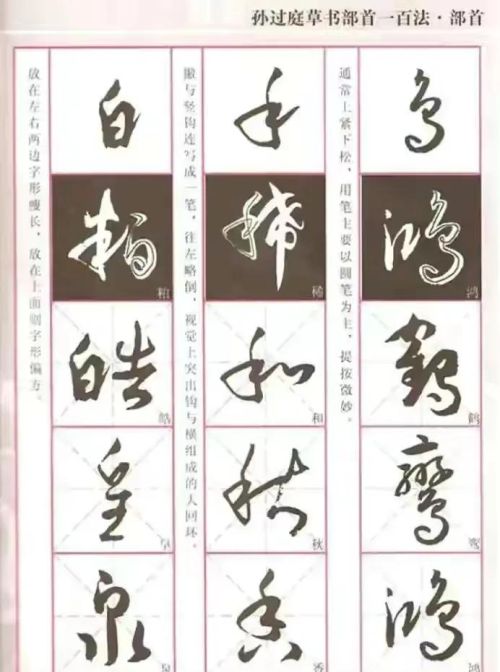 孙过庭草书部首一百法·部首
鸟
鸿
鸿
鹤
鹤
鸾
鸾
鸿
鸿
通常上紧下松，用笔主要以圆笔为主，提按微妙。
禾
稀
稀
和
和
秋
秋
香
香
撇与竖钩连写成一笔，往左略倒，视觉上突出钩与横组成的人回环。
白
粕
粕
皓
皓
皇
泉
泉
放在左右两边字形瘦长，放在上面则字形偏方。